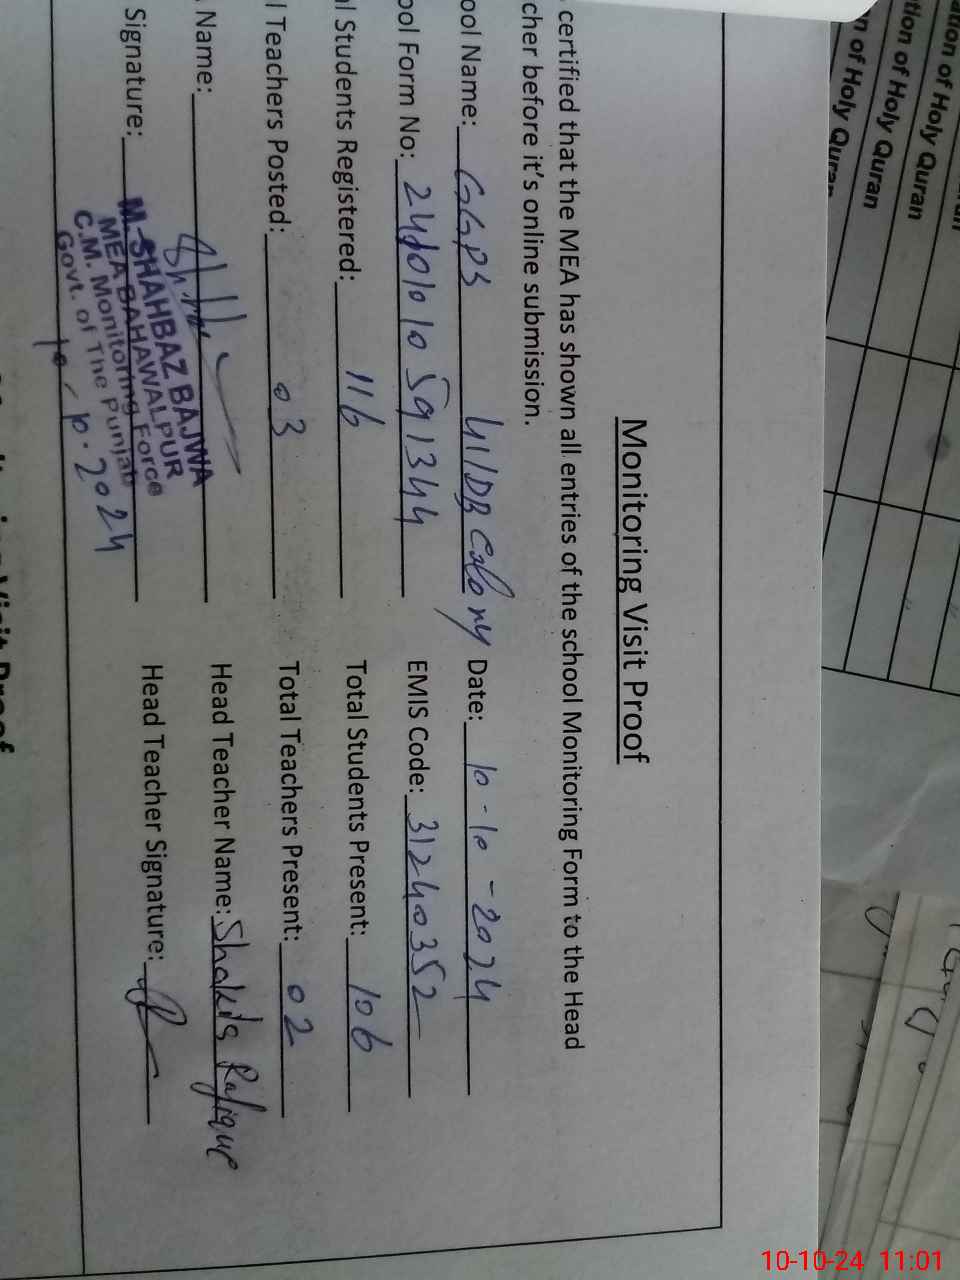 Monitoring Visit Proof
certified that the MEA has shown all entries of the school Monitoring Form to the Head
cher before it's online submission.
ool Name: GGPS 41/DB Colony Date: 10-10-2024
ool Form No: 24101010591344 EMIS Code: 31240352
al Students Registered: 116 Total Students Present: 106
l Teachers Posted: 03 Total Teachers Present: 02
Name: Head Teacher Name: Rafique
Signature: Head Teacher Signature:
M. SHAHBAZ BAJWA
MEA BAHAWALPUR
C.M. Monitoring Force
Govt. of The Punjab
10-10-2024
Visit Proof
ation of Holy Quran
tion of Holy Quran
n of Holy Quran
10-10-24 11:01